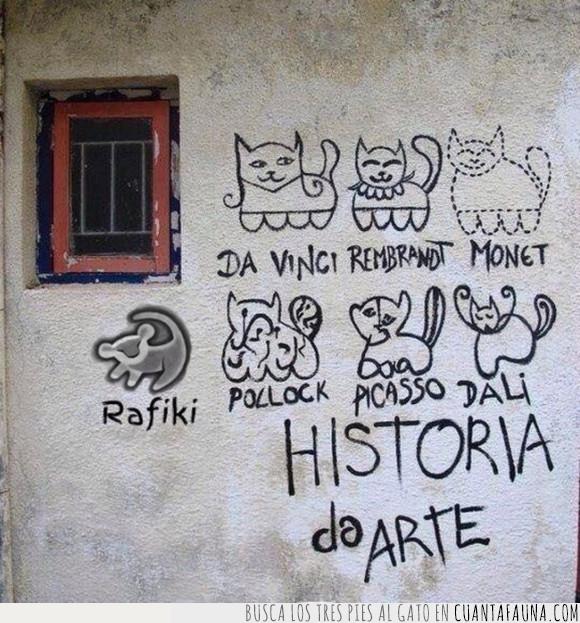 DA VINCI REMBRANDT MONET
POLLOCK PICASSO DALI
Rafiki
HISTORIA
da ARTE
BUSCA LOS TRES PIES AL GATO EN CUANTAFAUNA.COM